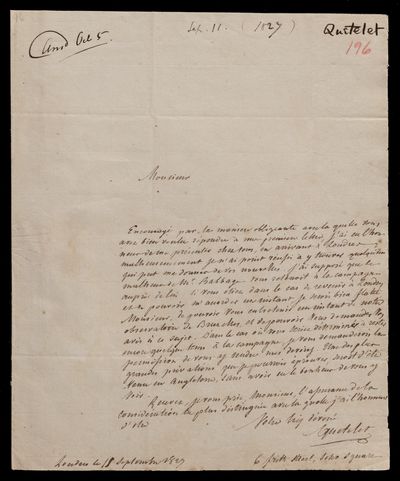 Sep. 11. (1827)
Quetelet
196
Ansd Oct 5
Monsieur
Encouragé par la manière obligeante avec laquelle vous
avez bien voulu répondre à ma première lettre j'ai eu l'hon
neur de me présenter chez vous, en arrivant à Londres
malheureusement je n'ai point réussi à y trouver quelqu'un
qui pût me donner de vos nouvelles. J'ai supposé que le
malheur de Mr. Babbage vous retenait à la campagne
auprès de lui. Si vous étiez dans le cas de revenir à Londres
et de pouvoir m'accorder un instant je serais bien flatté
Monsieur, de pouvoir vous entretenir un instant de notre
observatoire de Bruxelles, et de pouvoir vous demander vos
avis à ce sujet. Dans le cas où vous seriez déterminé à rester
encore quelque tems à la campagne, je vous demanderais la
permission de vous y rendre mes devoirs. Une des plus
grandes privations que je pourrais éprouver serait d'être
venu en Angleterre, sans avoir eu le bonheur de vous y
voir.
Recevez, je vous prie, Monsieur, l'assurance de la
considération la plus distinguée avec laquelle j'ai l'honneur
d'être
Votre très dévoué
Quetelet
Londres le 11 Septembre 1827
6 frith street, Soho Square